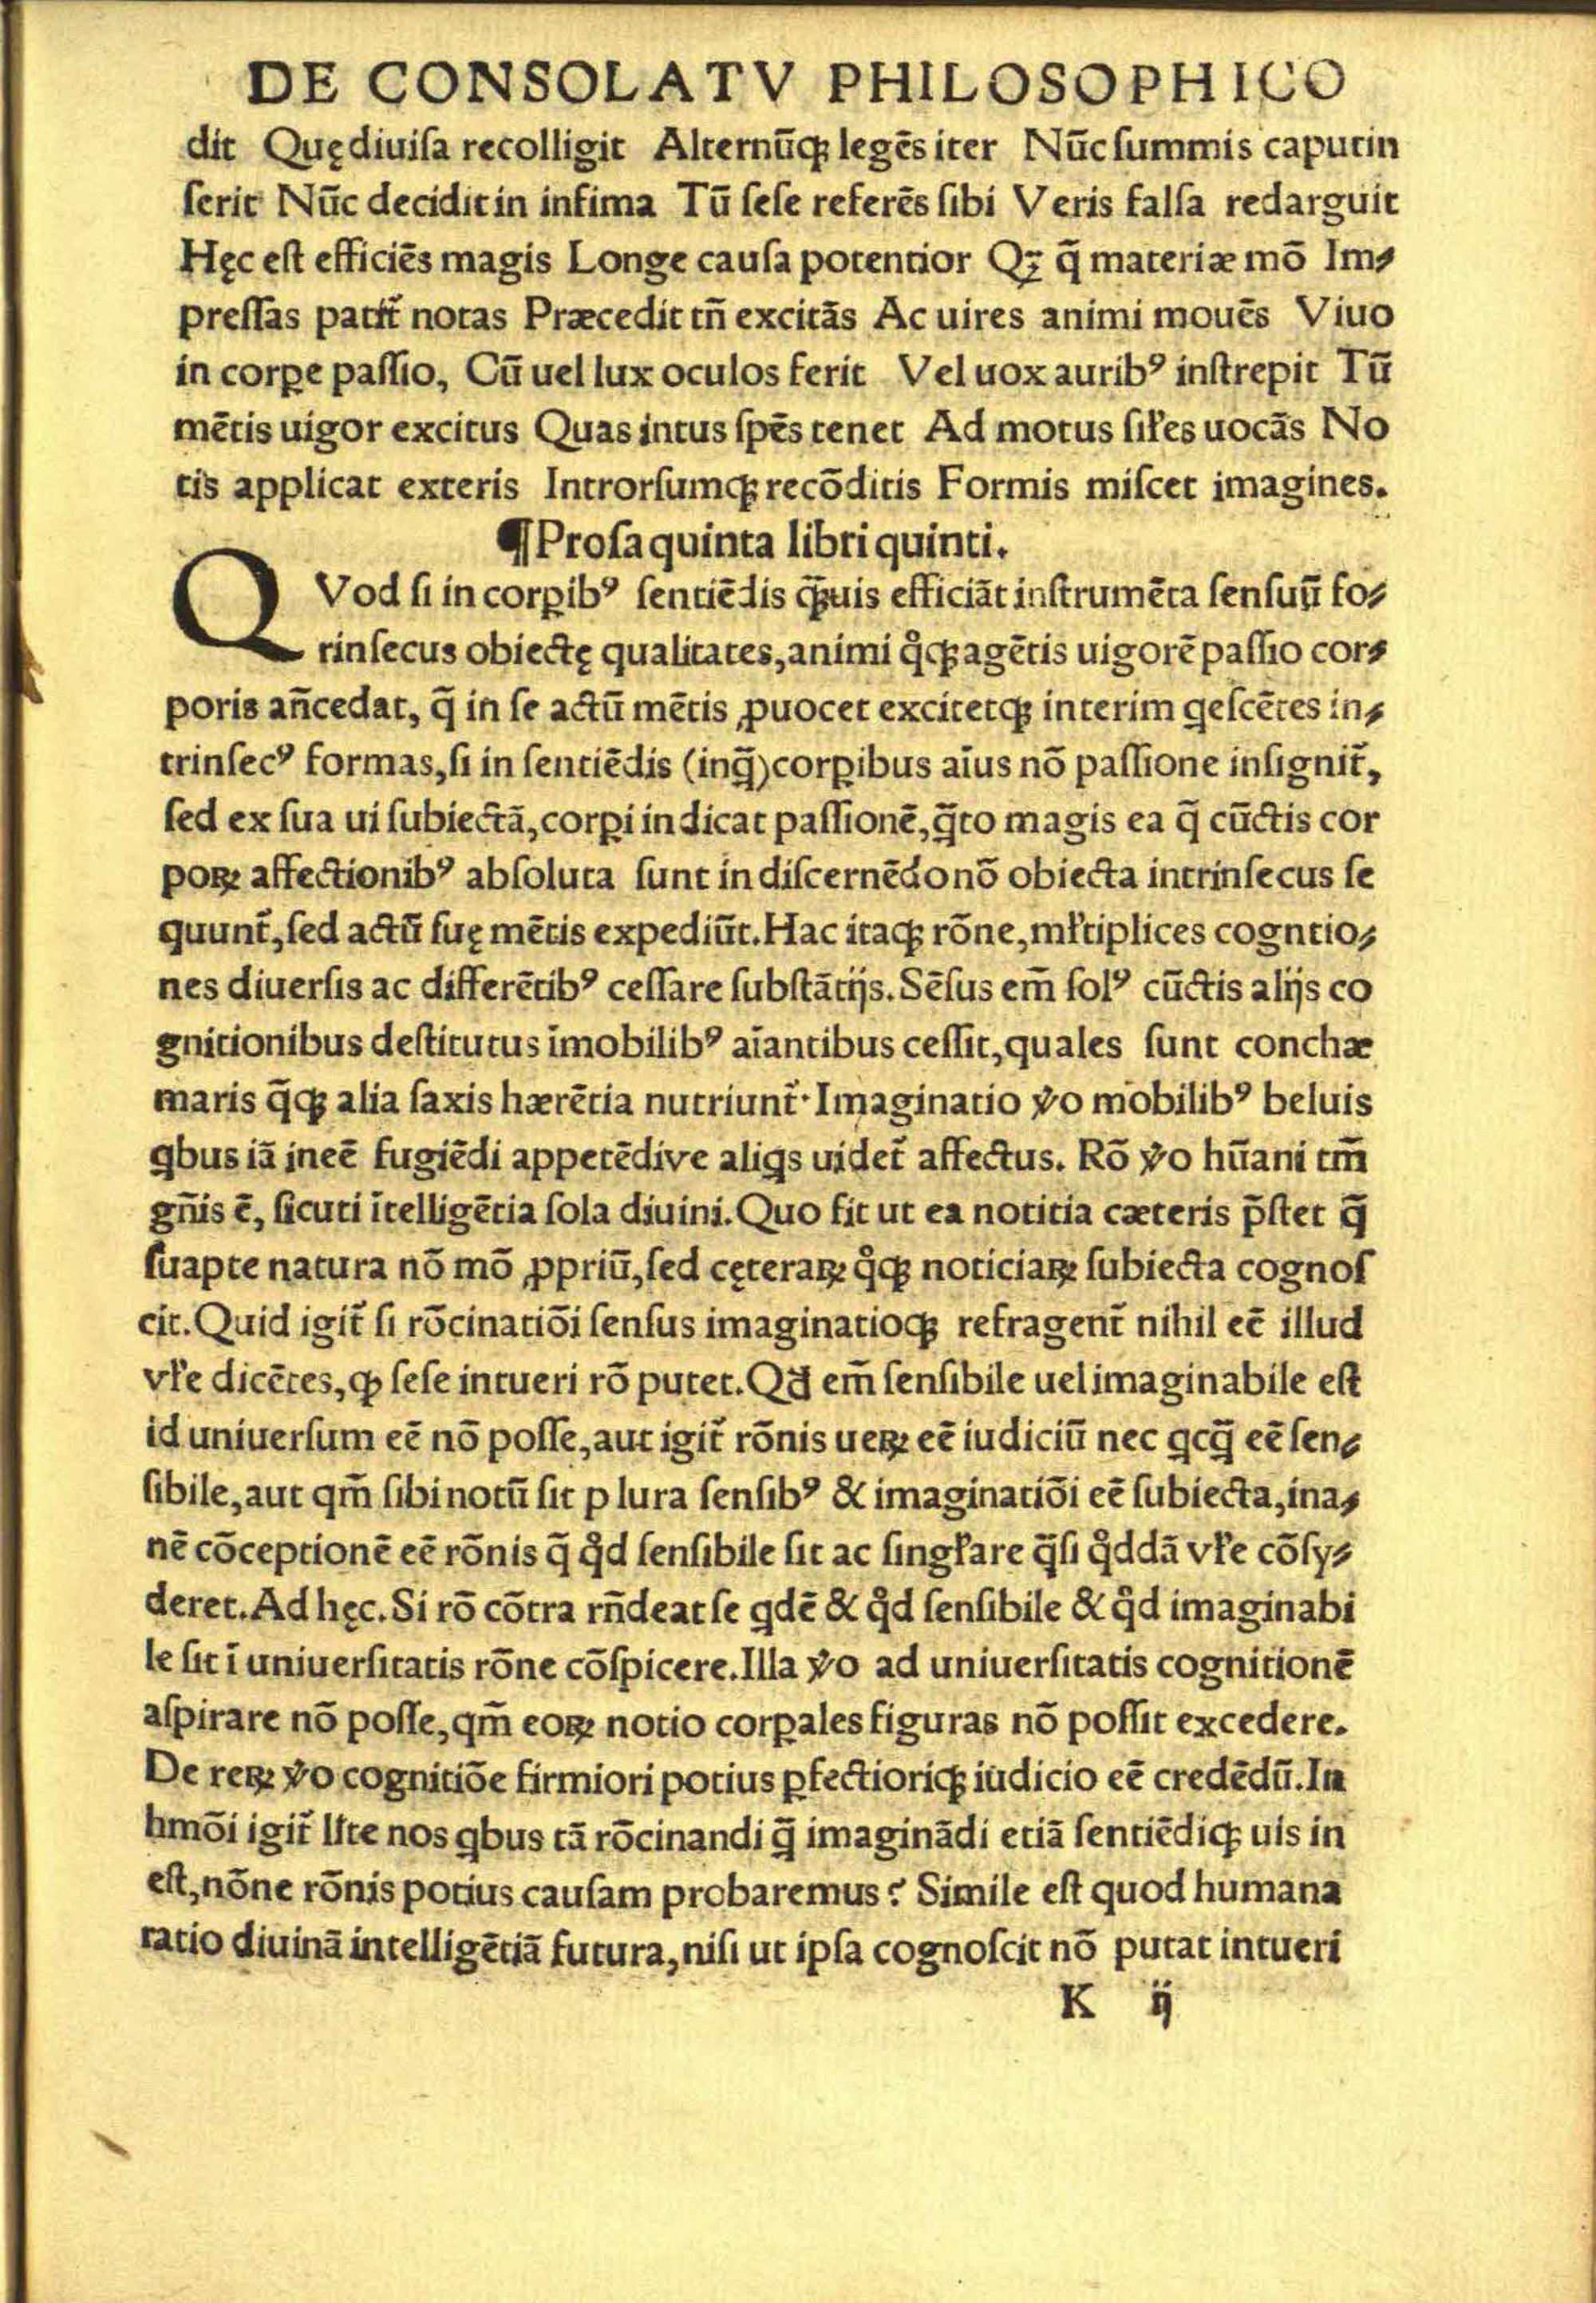 DE CONSOLATV PHILOSOPHICO
dit Quę diuiſa recolligit Alternūq; legēs iter Nūc ſummis caput in
ſerit Nūc decidit in infima Tū ſeſe referēs ſibi Veris falſa redarguit
Hęc eſt efficiēs magis Longe cauſa potentior Qꝫ q̄ materiæ mō Im⸗
preſſas patit᷑ notas Præcedit tn̄ excitās Ac uires animi mouēs Viuo
in corꝑe paſſio, Cū uel lux oculos ferit Vel uox aurib⁹ inſtrepit Tū
mētis uigor excitus Quas intus ſpēs tenet Ad motus ſiłes uocās No
tis applicat exteris Introrſumq; recōditis Formis miſcet imagines.
¶Proſa quinta libri quinti.
QVod ſi in corꝑib⁹ ſentiēdis q̄uis efficiāt inſtrumēta ſenſuū fo⸗
rinſecus obiectę qualitates, animi qͦq; agētis uigorē paſſio cor⸗
poris an̄cedat, q̄ in ſe actū mētis ꝓuocet excitetq; interim qeſcētes in⸗
trinſec⁹ formas, ſi in ſentiēdis (inq̄) corꝑibus aīus nō paſſione inſignit᷑,
ſed ex ſua ui ſubiectā, corꝑi indicat paſſionē, q̄to magis ea q̄ cūctis cor
poꝝ affectionib⁹ abſoluta ſunt in diſcernēdo nō obiecta intrinſecus ſe
quunt᷑, ſed actū ſuę mētis expediūt. Hac itaq; rōne, młtiplices cogntio⸗
nes diuerſis ac differētib⁹ ceſſare ſubſtātijs. Sēſus em̄ ſol⁹ cūctis alijs co
gnitionibus deſtitutus īmobilib⁹ aīantibus ceſſit, quales ſunt conchæ
maris q̄q; alia ſaxis hærētia nutriunt᷑. Imaginatio ꝟo mobilib⁹ beluis
ꝗbus iā ineē fugiēdi appetēdive aliꝗs uidet᷑ affectus. Rō ꝟo hūani tm̄
gn̄is ē, ſicuti ītelligētia ſola diuini. Quo fit ut ea notitia cæteris p̄ſtet q̄
ſuapte natura nō mō ꝓpriū, ſed cęteraꝝ qͦq; noticiaꝝ ſubiecta cognoſ
cit. Quid igit᷑ ſi rōcinatiōi ſenſus imaginatioq; refragent᷑ nihil eē illud
vłe dicētes, ꝙ ſeſe intueri rō putet. Qd̄ em̄ ſenſibile uel imaginabile eſt
id uniuerſum eē nō poſſe, aut igit᷑ rōnis ueꝝ eē iudiciū nec ꝗcq̄ eē ſen⸗
ſibile, aut qm̄ ſibi notū ſit plura ſenſib⁹ & imaginatiōi eē ſubiecta, ina⸗
nē cōceptionē eē rōnis q̄ qͦd ſenſibile ſit ac ſingłare q̄ſi qͦddā vłe cōſy⸗
deret. Ad hęc. Si rō cōtra rn̄deat ſe ꝗdē & qͦd ſenſibile & qͦd imaginabi
le ſit ī uniuerſitatis rōne cōſpicere. Illa ꝟo ad uniuerſitatis cognitionē
aſpirare nō poſſe, qm̄ eoꝝ notio corꝑales figuras nō poſſit excedere.
De reꝝ ꝟo cognitiōe firmiori potius ꝑfectioriq; iudicio eē credēdū. In
hmōi igit᷑ lr̄te nos ꝗbus tā rōcinandi q̄ imaginādi etiā ſentiēdiq; uis in
eſt, nōne rōnis potius cauſam probaremus? Simile eſt quod humana
ratio diuinā intelligētiā futura, niſi ut ipſa cognoſcit nō putat intueri
K ij